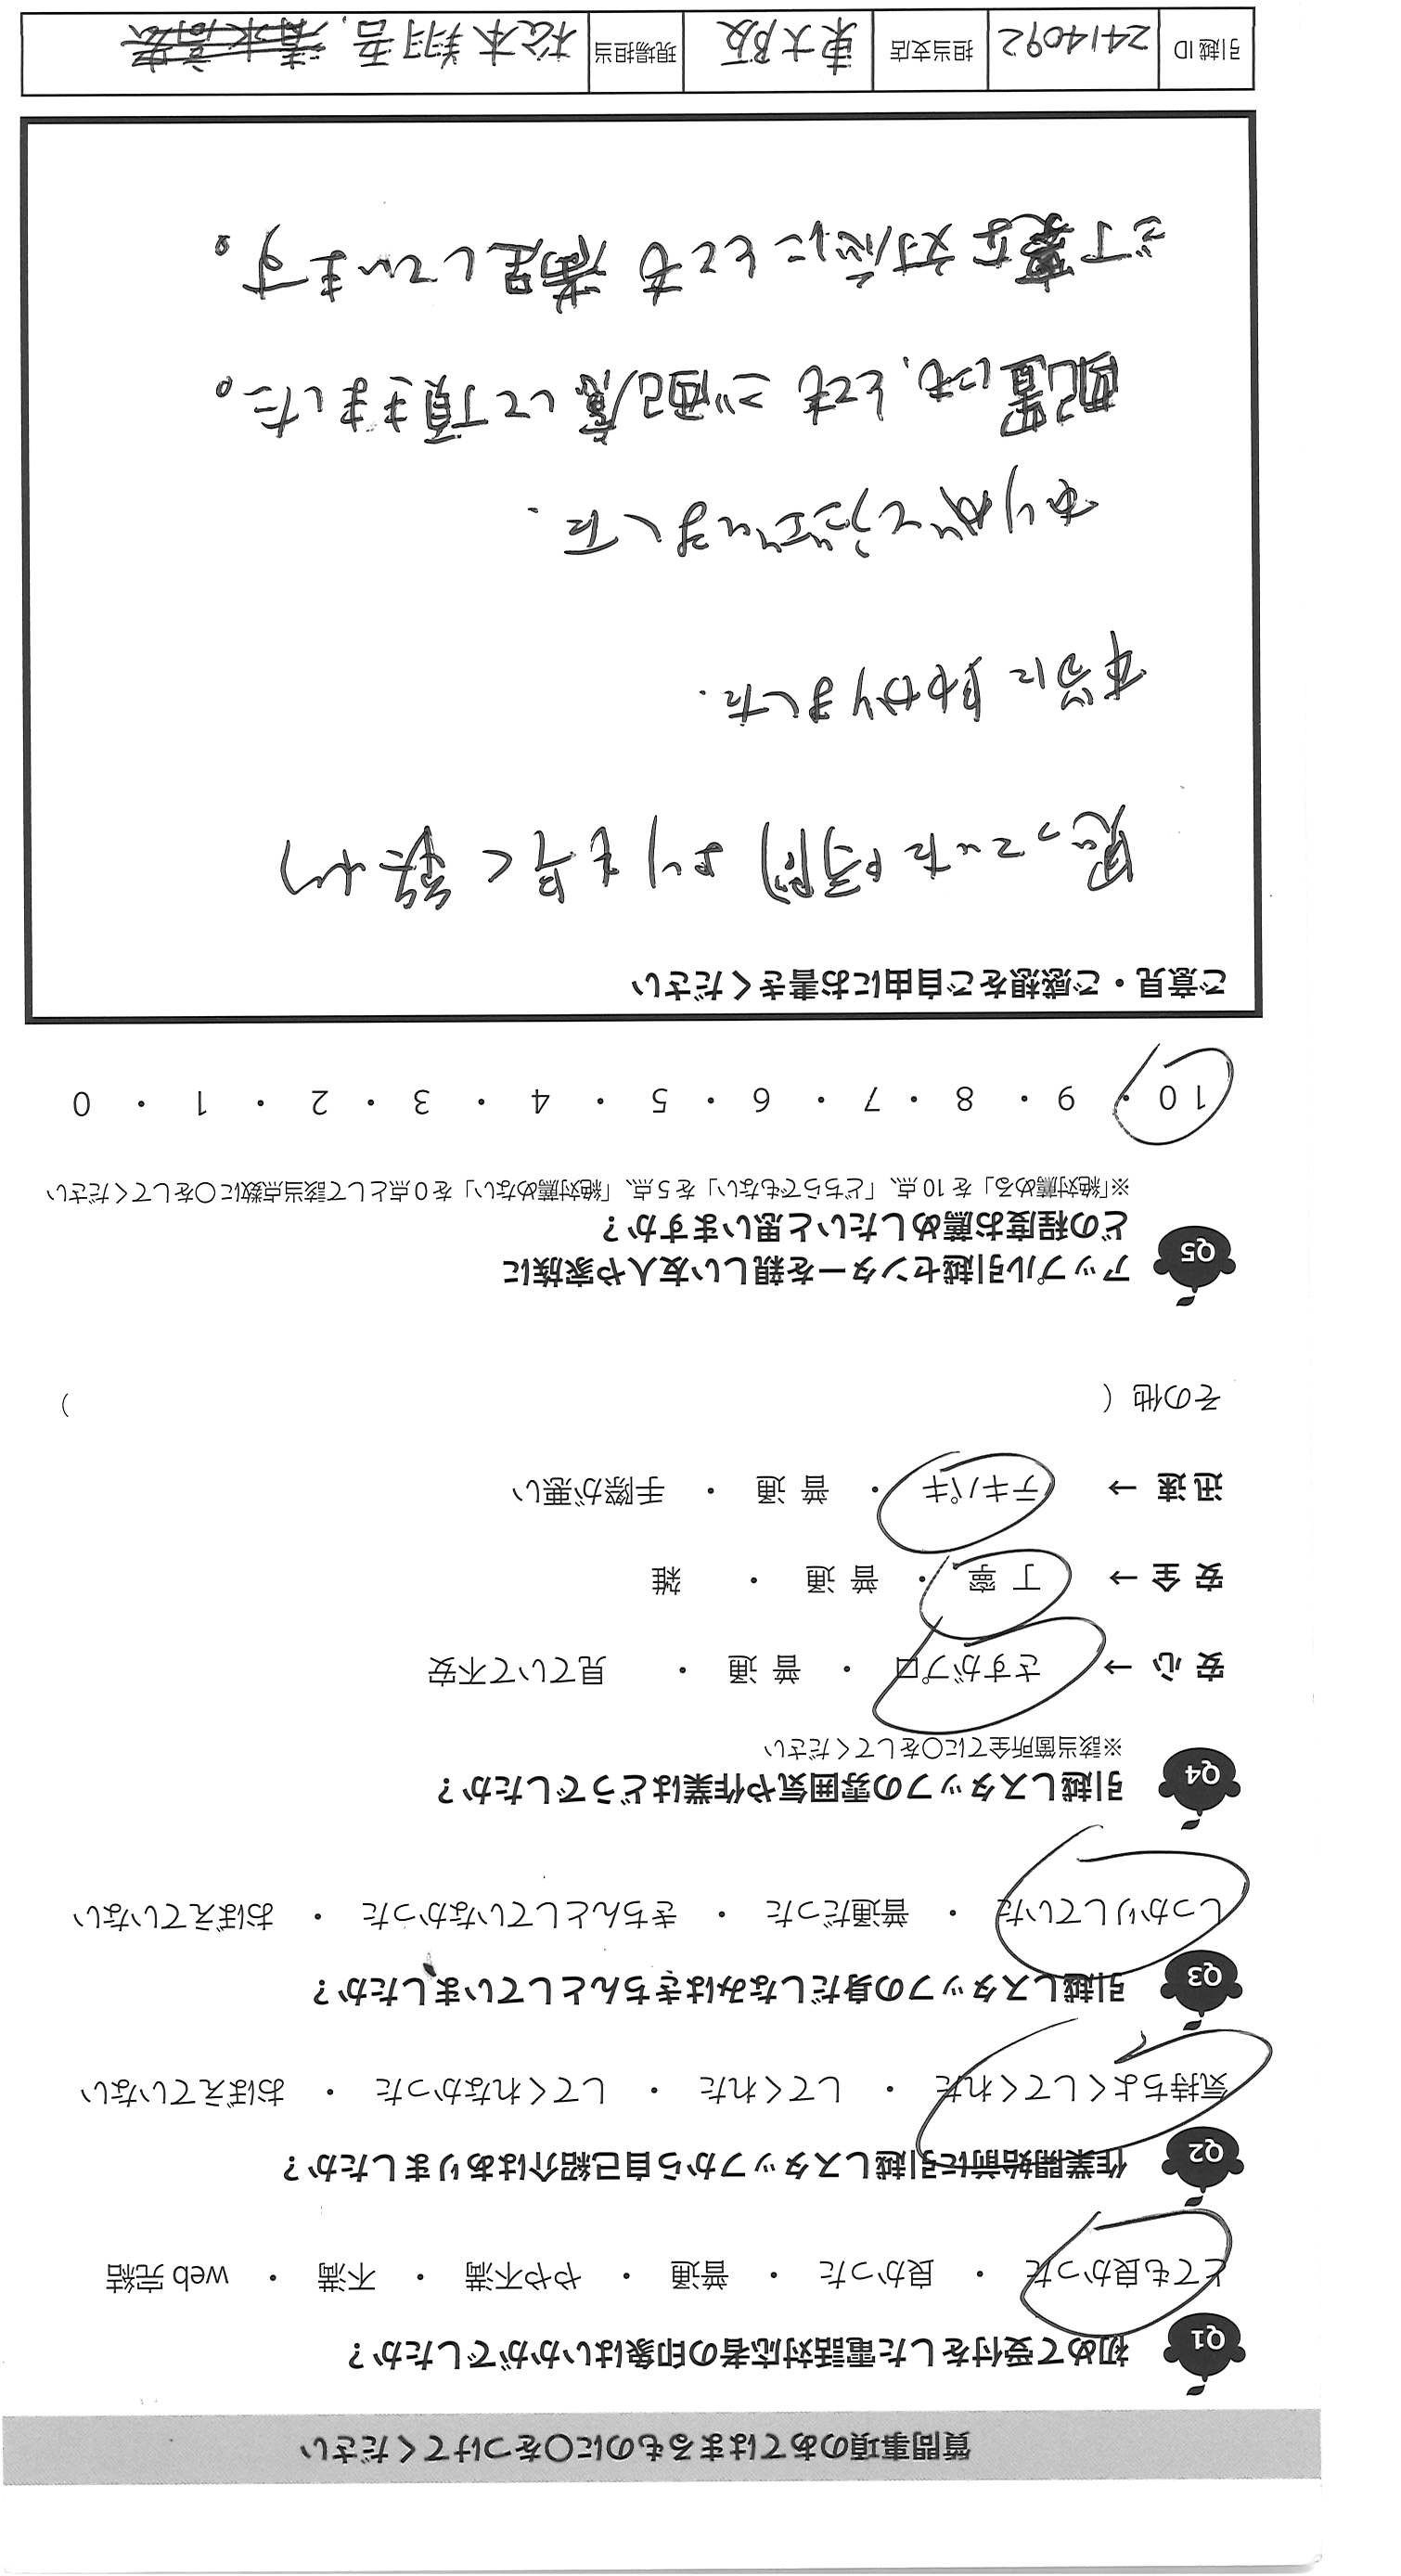 質問事項のあてはまるものに○をつけてください
Q1 初めて受付をした電話対応者の印象はいかがでしたか？
とても良かった ・ 良かった ・ 普通 ・ やや不満 ・ 不満 ・ web 完結
Q2 作業開始前に引越しスタッフから自己紹介はありましたか？
気持ちよくしてくれた ・ してくれた ・ してくれなかった ・ おぼえていない
Q3 引越しスタッフの身だしなみはきちんとしていましたか？
しっかりしていた ・ 普通だった ・ きちんとしていなかった ・ おぼえていない
Q4 引越しスタッフの雰囲気や作業はどうでしたか？
※該当箇所全てに○をしてください
安 心 → さすがプロ ・ 普 通 ・ 見ていて不安
安 全 → 丁 寧 ・ 普 通 ・ 雑
迅 速 → テキパキ ・ 普 通 ・ 手際が悪い
その他（ ）
Q5 アップル引越センターを親しい友人や家族に
どの程度お薦めしたいと思いますか？
※「絶対薦める」を 10 点、「どちらでもない」を 5 点、「絶対薦めない」を 0 点として該当点数に○をしてください
10 ・ 9 ・ 8 ・ 7 ・ 6 ・ 5 ・ 4 ・ 3 ・ 2 ・ 1 ・ 0
ご意見・ご感想をご自由にお書きください
思っていた時間よりも早く終わり
本当に助かりました.
ありがとうございました.
配置にも、とてもご配慮して頂きました。
ご丁寧な対応にとても満足しています。
引越 ID 2414092 担当支店 東大阪 現場担当 松本翔吾, 清水高宏